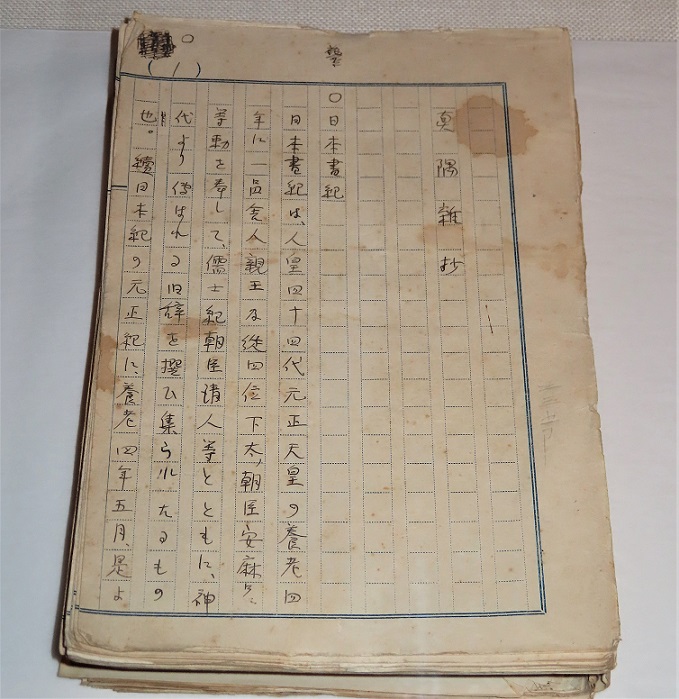 (1)
奥隅雑抄
一
〇日本書紀
日本書紀は、人皇四十四代元正天皇の養老四
年に一品舎人親王及従四位下太朝臣安麻呂
等勅を奉して、儒士紀朝臣清人等とともに、神
代より伝はれる旧辞を撰ひ集られたるもの
也。續日本紀の元正紀に、養老四年五月、是よ